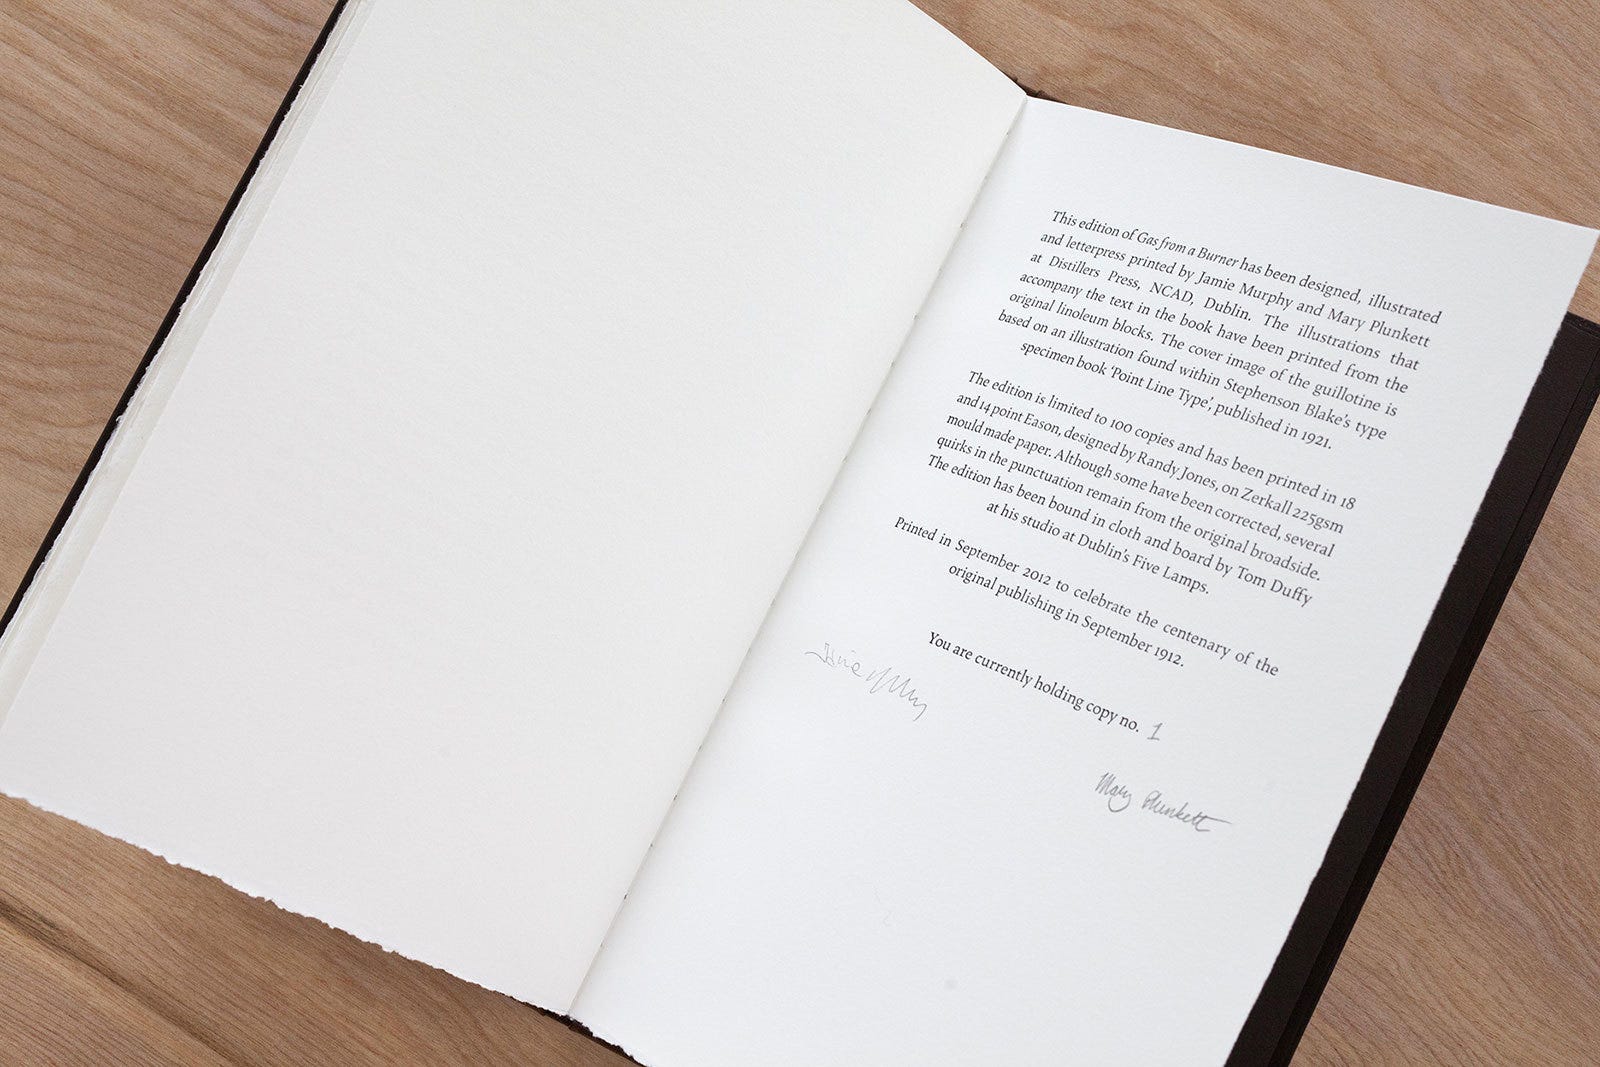 This edition of Gas from a Burner has been designed, illustrated
and letterpress printed by Jamie Murphy and Mary Plunkett
at Distillers Press, NCAD, Dublin. The illustrations that
accompany the text in the book have been printed from the
original linoleum blocks. The cover image of the guillotine is
based on an illustration found within Stephenson Blake's type
specimen book 'Point Line Type', published in 1921.
The edition is limited to 100 copies and has been printed in 18
and 14 point Eason, designed by Randy Jones, on Zerkall 225gsm
mould made paper. Although some have been corrected, several
quirks in the punctuation remain from the original broadside.
The edition has been bound in cloth and board by Tom Duffy
at his studio at Dublin's Five Lamps.
Printed in September 2012 to celebrate the centenary of the
original publishing in September 1912.
You are currently holding copy no. 1
Mary Plunkett